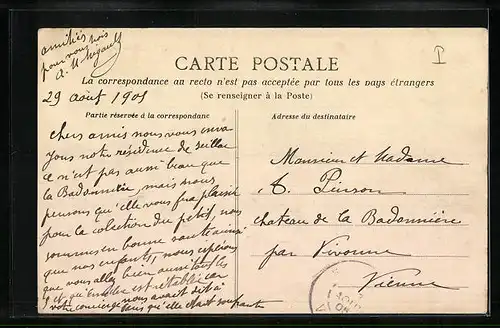 amitiés
pour vous trois
CARTE POSTALE
La correspondance au recto n'est pas acceptée par tous les pays étrangers
(Se renseigner à la Poste)
29 août 190
Partie réservée à la correspondance
Adresse du destinataire
chers amis nous vous envo
yons notre résidence de
ce n'est pas aussi beau que
la Badonnière, mais nous
pensons qu'elle vous fra plaisir
pour la colection du petit, nous
sommes en bonne santé ainsi
que nos enfants, nous espérons
que vous allez bien aussi tous les
et qu' est rétablie car
votre concierge nous avait dit à
qu'elle était souffrante
Monsieur et Madame
Pinson
chateau de la Badonnière
par Vivonne
Vienne